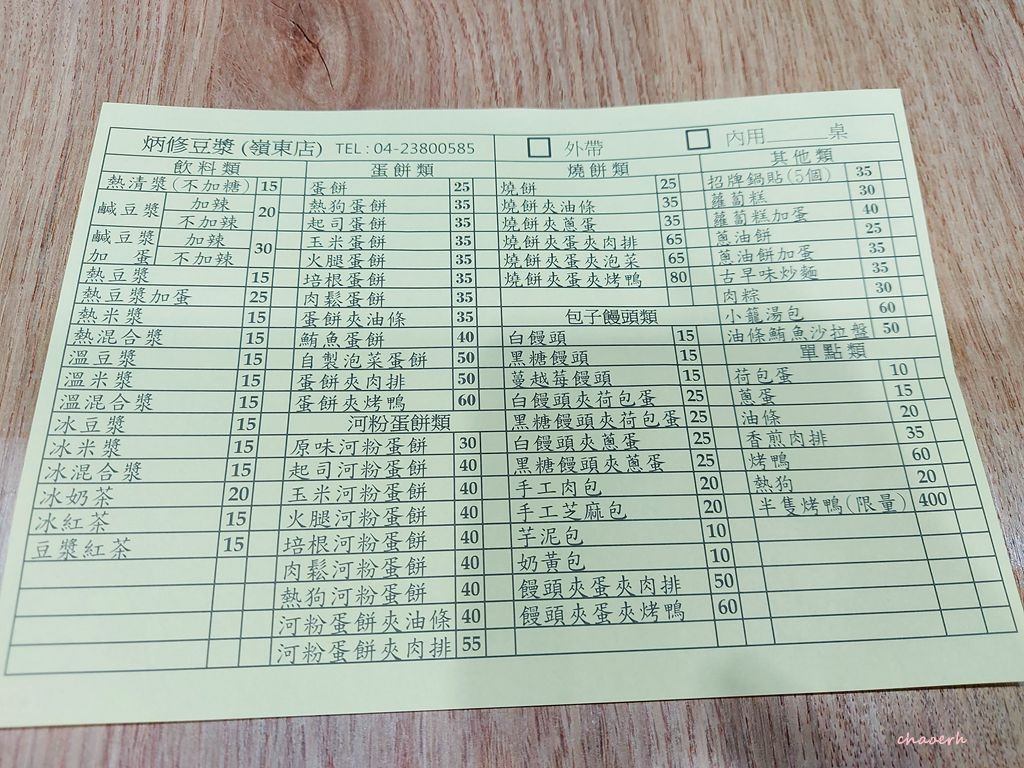 炳修豆漿 (嶺東店) TEL:04-23800585
□ 外帶 □ 內用 桌
飲料類
熱清漿(不加糖) 15
鹹豆漿 加辣 不加辣 20
鹹豆漿加蛋 加辣 不加辣 30
熱豆漿 15
熱豆漿加蛋 25
熱米漿 15
熱混合漿 15
溫豆漿 15
溫米漿 15
溫混合漿 15
冰豆漿 15
冰米漿 15
冰混合漿 15
冰奶茶 20
冰紅茶 15
豆漿紅茶 15
蛋餅類
蛋餅 25
熱狗蛋餅 35
起司蛋餅 35
玉米蛋餅 35
火腿蛋餅 35
培根蛋餅 35
肉鬆蛋餅 35
蛋餅夾油條 35
鮪魚蛋餅 40
自製泡菜蛋餅 50
蛋餅夾肉排 50
蛋餅夾烤鴨 60
河粉蛋餅類
原味河粉蛋餅 30
起司河粉蛋餅 40
玉米河粉蛋餅 40
火腿河粉蛋餅 40
培根河粉蛋餅 40
肉鬆河粉蛋餅 40
熱狗河粉蛋餅 40
河粉蛋餅夾油條 40
河粉蛋餅夾肉排 55
燒餅類
燒餅 25
燒餅夾油條 35
燒餅夾蔥蛋 35
燒餅夾蛋夾肉排 65
燒餅夾蛋夾泡菜 65
燒餅夾蛋夾烤鴨 80
包子饅頭類
白饅頭 15
黑糖饅頭 15
蔓越莓饅頭 15
白饅頭夾荷包蛋 25
黑糖饅頭夾荷包蛋 25
白饅頭夾蔥蛋 25
黑糖饅頭夾蔥蛋 25
手工肉包 20
手工芝麻包 20
芋泥包 10
奶黃包 10
饅頭夾蛋夾肉排 50
饅頭夾蛋夾烤鴨 60
其他類
招牌鍋貼(5個) 35
蘿蔔糕 30
蘿蔔糕加蛋 40
蔥油餅 25
蔥油餅加蛋 35
古早味炒麵 35
肉粽 30
小籠湯包 60
油條鮪魚沙拉盤 50
單點類
荷包蛋 10
蔥蛋 15
油條 20
香煎肉排 35
烤鴨 60
熱狗 20
半隻烤鴨(限量) 400
chaoerh